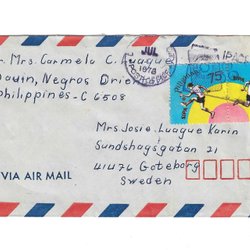 r. Mrs. Carmela C.
Negros Orie
Philippines - C6508
JUL
1978
75
Mrs Josie Luague Karin
Sundshagsgatan 21
41476 Goteborg
Sweden
VIA AIR MAIL